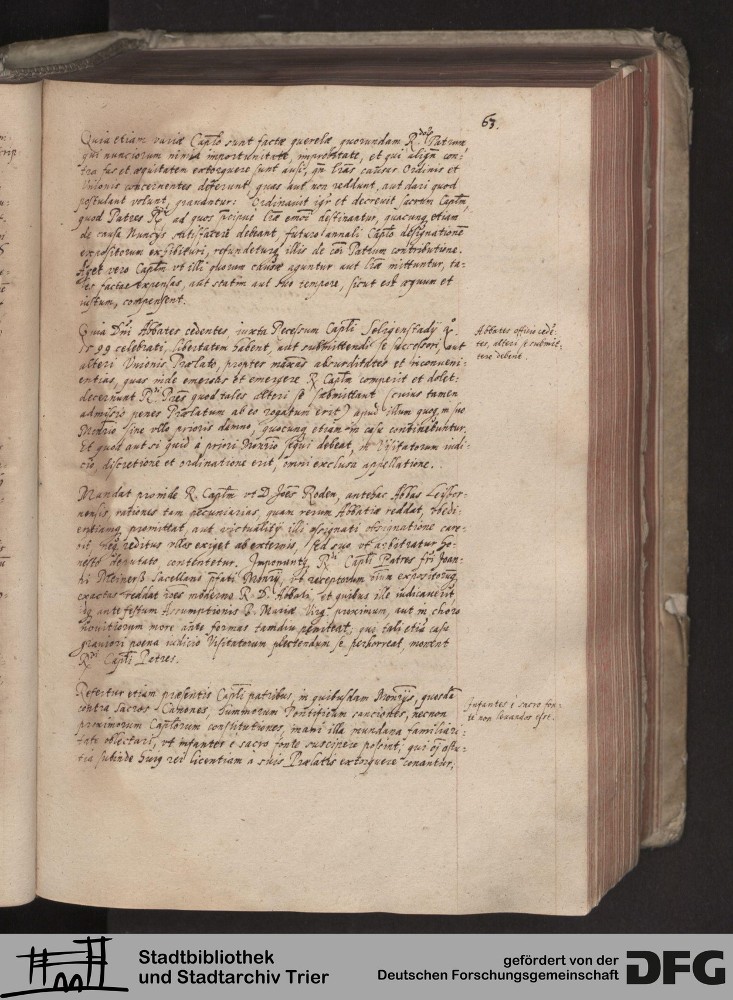 63.
Quia etiam variæ Caplo sunt factæ querelæ quorundam Patrum,
qui nunciorum nimia importunitate, improbitate, et qui aliqn con-
tra fas et æquitatem extorquere sunt ausi, qn lras causas Ordinis et
Unionis concernentes deferunt, quas aut non reddunt, aut dari quod
postulant volunt, grauantur: Ordinauit igr et decreuit sacrum Caplm,
quod Patres ad quos lræ destinantur, quacunq etiam
de causa Nuncys satisfacere debeant, futuro annali Caplo designatione
expositorum exhibituri, refundeturq illis de coi Patrum contributione.
Aget vero Caplm vt illi quorum causæ aguntur aut lræ mittuntur, ta-
les factas expensas, aut statim aut suo tempore, sicut est æquum et
iustum, compensent.
Quia Dni Abbates cedentes, iuxta Recessum Capli Seligenstadij aº.
1599 celebrati, libertatem habent, aut submittendi se successori, aut
alteri Unionis Prælato, propter maxas absurditates et inconueni-
entias, quas inde emersas et emergere R. Caplm comperit et dolet:
decernunt Rdi Pres quod tales alteri se submittant (cuius tamen
admissio penes Prælatum ab eo rogatum erit) apud illum quoq in suo
Monrio sine vllo prioris damno, quocunq etiam in casu contineatur.
Et quod aut si quid à priori Monrio sequi debeat, in Visitatorum iudi-
cio, discretione et ordinatione erit, omni exclusa appellatione.
Abbates officio ceden-
tes, alteri se submit-
tere debent.
Mandat proinde R. Caplm vt D. Joes Roden, antehac Abbas
rationes tam pecuniarias, quam rerum Abbatiæ reddat, obedi-
entiamq promittat, aut victualitij illi assignati assignatione care-
bit reditus vllos exiget ab externis, sed suo vt arbitratur ho-
nesto deputato contentetur. Imponunt Rdi Capli Patres fri Joan-
ni Meinerß Sacellano pfati Monrij, vt receptorum expositorumq
exactas reddat roes moderno R. D. Abbati, et quibus ille indicauerit
ante festum Assumptionis B. Mariæ Virg. proximum, aut in choro
nouitiorum more ante formas tamdiu peniteat; qui tali etia casu
grauiori poena iudicio Visitatorum plectendum se perhorreat, monent
Rdi Capli Patres.
Refertur etiam præsentis Capli patribus, in quibusdam Monrijs, quosda
contra sacros Canones, summorum Pontificum sanctiones, necnon
proximorum Caplorum constitutiones, mundana familiari-
tate oblectari, vt infantes è sacro fonte suscipere possint, qui
subinde huiq rei licentiam a suis Prælatis extorquere conantur.
Infantes è sacro fon-
te non leuandos esse.
Stadtbibliothek
und Stadtarchiv Trier
gefördert von der
Deutschen Forschungsgemeinschaft
DFG